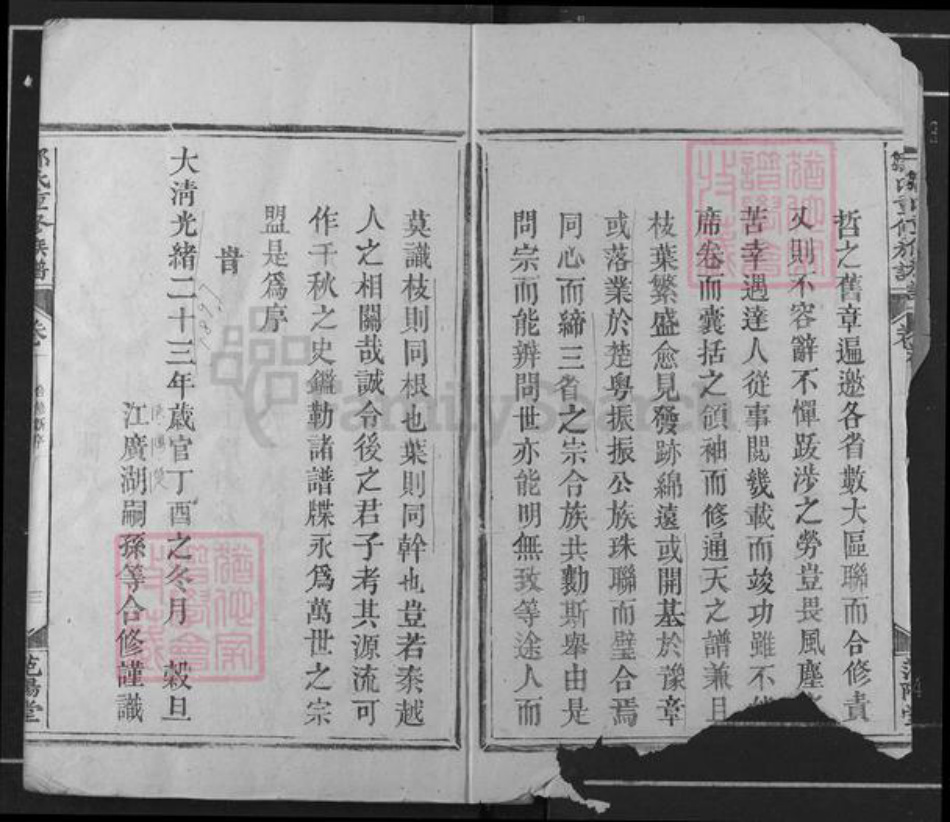 鄒氏重修族譜
哲之舊章遍邀各省數大區聯而合修責
又則不容辭不憚跋涉之勞豈畏風塵
苦幸遇達人從事閱幾載而竣功雖不
席卷而囊括之領袖而修通天之譜兼且
枝葉繁盛愈見發跡綿遠或開基於豫章
或落業於楚粵振振公族珠聯而璧合焉
同心而締三省之宗合族共勷斯舉由是
問宗而能辨問世亦能明無致等途人而
莫識枝則同根也葉則同幹也豈若秦越
人之相關哉誠令後之君子考其源流可
作千秋之史鑑勒諸譜牒永爲萬世之宗
盟是爲序
旹
1897
大清光緒二十三年歲官丁酉之冬月 穀旦
江廣湖嗣孫等合修謹識
鄒氏重修族譜 卷 范陽堂
FamilySearch